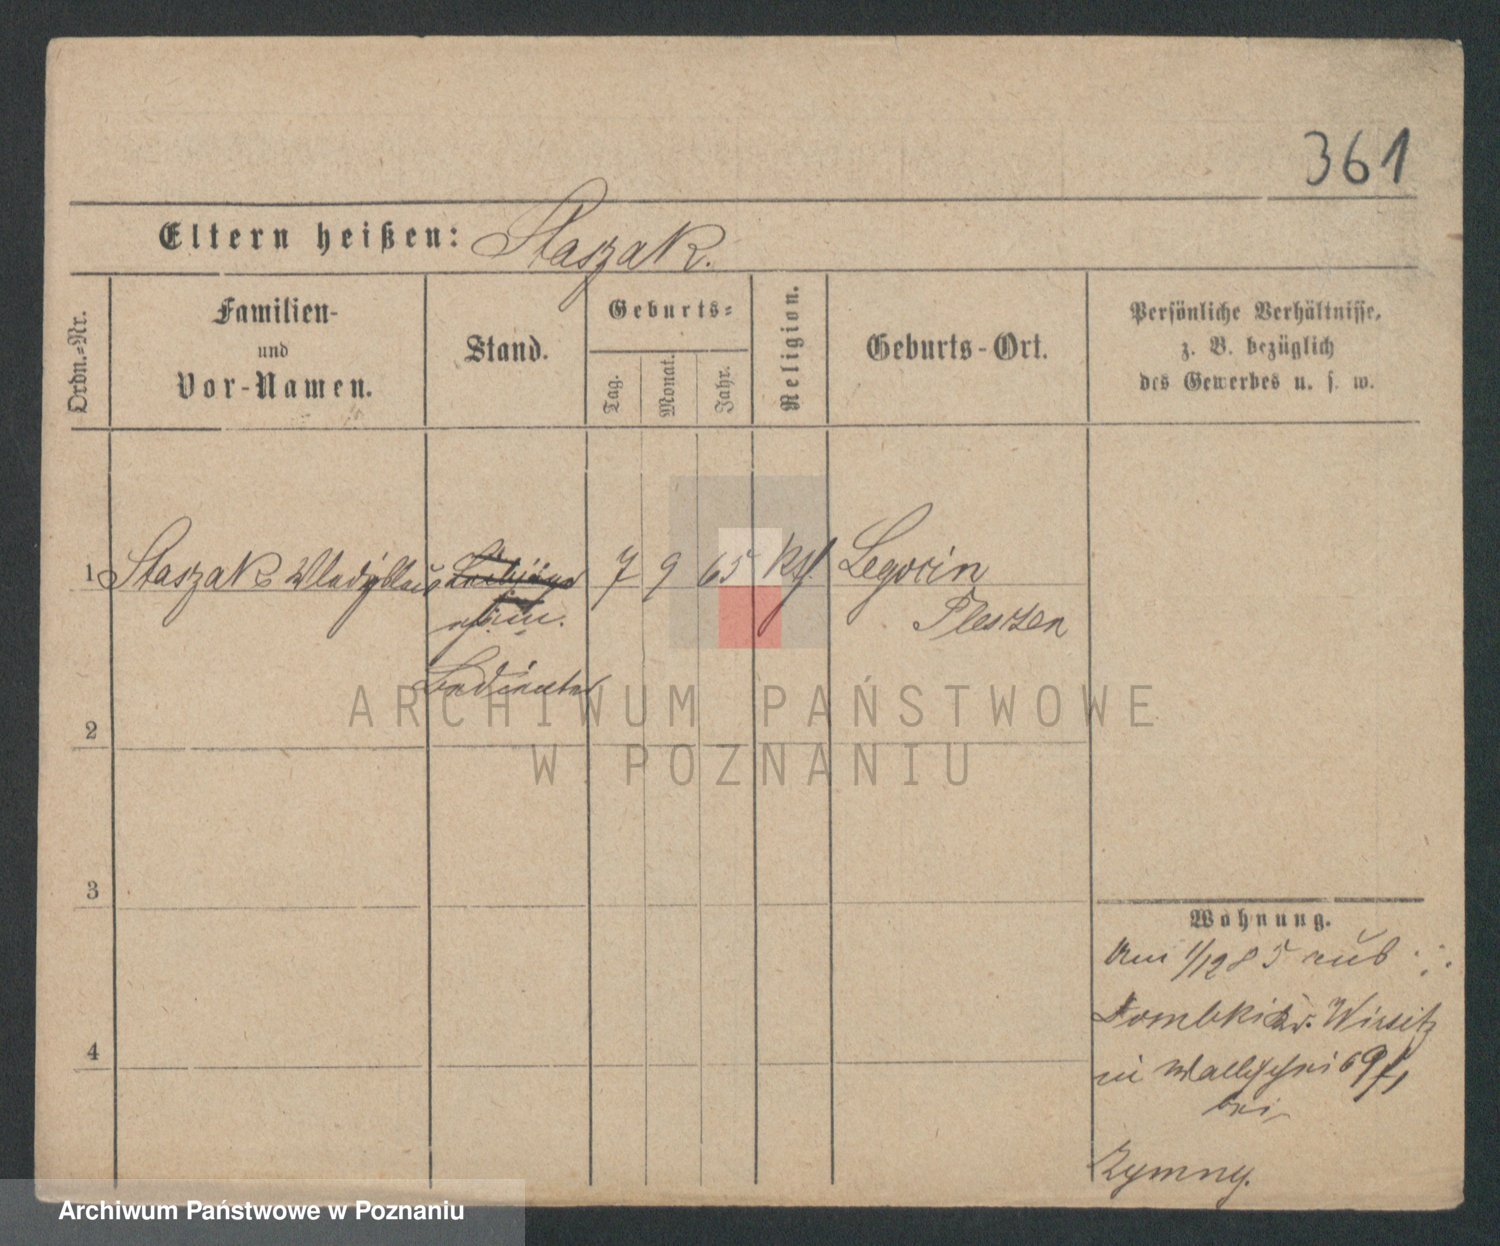 361
Eltern heißen: Staszak.
Ordn.=Nr.
Familien-
und
Vor-Namen.
Stand.
Geburts=
Tag.
Monat.
Jahr.
Religion.
Geburts-Ort.
Persönliche Verhältnisse,
z. B. bezüglich
des Gewerbes u. s. w.
1 Staszak Wladislaus 7 9 65 kt. Legocin
Pleszen
Bedienter
2
3
4
Wohnung.
Am 1/12 85 aus
Dombki Kr. Wirsitz
in Wallischei 69/1
bei
Zymny.
ARCHIWUM PAŃSTWOWE
W POZNANIU
Archiwum Państwowe w Poznaniu